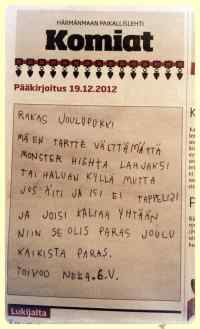 HÄRMÄNMAAN PAIKALLISLEHTI
Komiat
Pääkirjoitus 19.12.2012
RAKAS JOULUPUKKI
MÄ EN TARTTE VÄLTTÄMÄTTÄ
MONSTER HIGHTA LAHJAKSI
TAI HALUAN KYLLÄ MUTTA
JOS ÄITI JA ISI EI TAPPELISI
JA JOISI KALIAA YHTÄÄN
NIIN SE OLIS PARAS JOULU
KAIKISTA PARAS.
TOIVOO
6.V.
Lukijalta